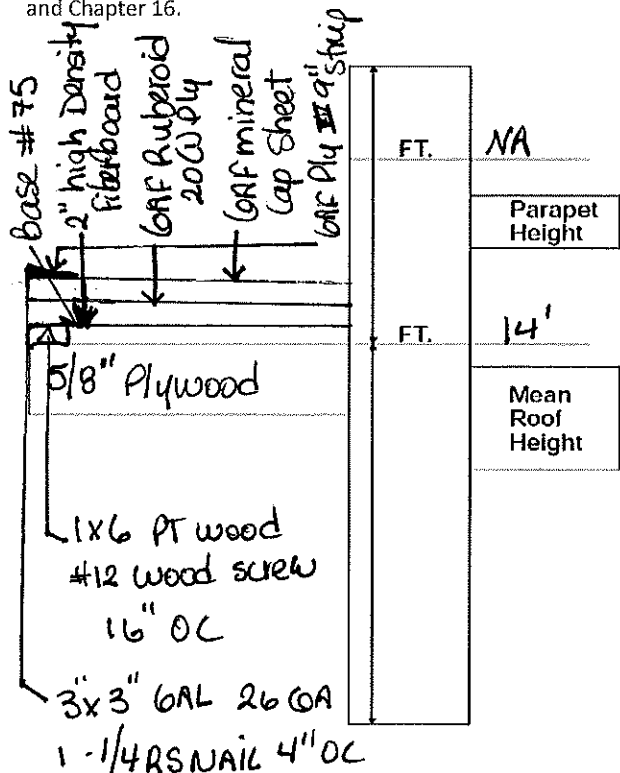 and Chapter 16.
base #75
2" high Density
Fiberboard
GAF Ruberoid
20 W Ply
GAF mineral
Cap Sheet
GAF Ply 9" strip
FT. NA
Parapet
Height
FT. 14'
5/8" Plywood
Mean
Roof
Height
1x6 PT wood
#12 wood screw
16" OC
3"x3" GAL 26 GA
1-1/4 RS NAIL 4" OC